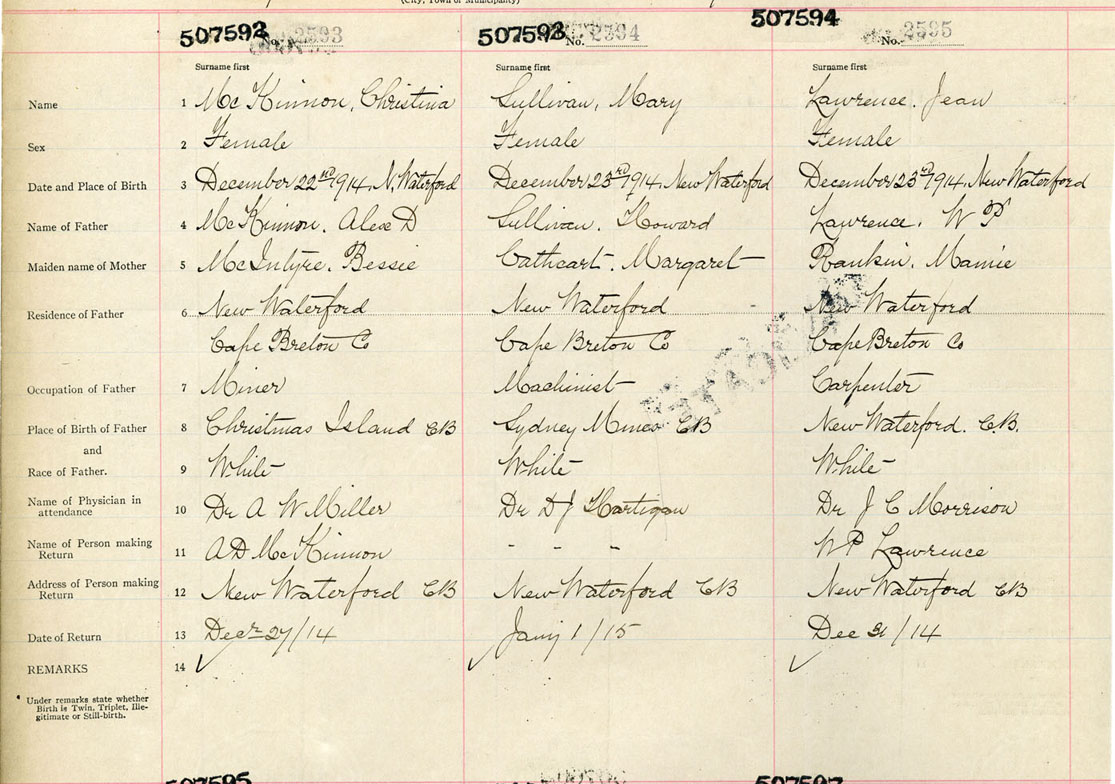 (City, Town or Municipality)
507592 No. 2593 507593 No. 2594 507594 No. 2595
Surname first Surname first Surname first
Name 1 Mc Kinnon, Christina Sullivan, Mary Lawrence, Jean
Sex 2 Female Female Female
Date and Place of Birth 3 December 22nd 1914, N. Waterford December 23rd 1914, New Waterford December 23rd 1914, New Waterford
Name of Father 4 McKinnon. Alex D Sullivan. Howard Lawrence. W P
Maiden name of Mother 5 McIntyre. Bessie Cathcart. Margaret Rankin. Mamie
Residence of Father 6 New Waterford New Waterford New Waterford
Cape Breton Co Cape Breton Co Cape Breton Co
Occupation of Father 7 Miner Machinist Carpenter
Place of Birth of Father 8 Christmas Island CB Sydney Mines CB New Waterford. C.B.
and
Race of Father. 9 White White White
Name of Physician in
attendance 10 Dr A W Miller Dr D J Hartigan Dr J C Morrison
Name of Person making
Return 11 A D McKinnon " " " W P Lawrence
Address of Person making
Return 12 New Waterford CB New Waterford CB New Waterford CB
Date of Return 13 Decr 27/14 Jany 1/15 Dec 31/14
REMARKS 14 ✓ ✓ ✓
* Under remarks state whether
Birth is Twin, Triplet, Ille-
gitimate or Still-birth.
507595 507597